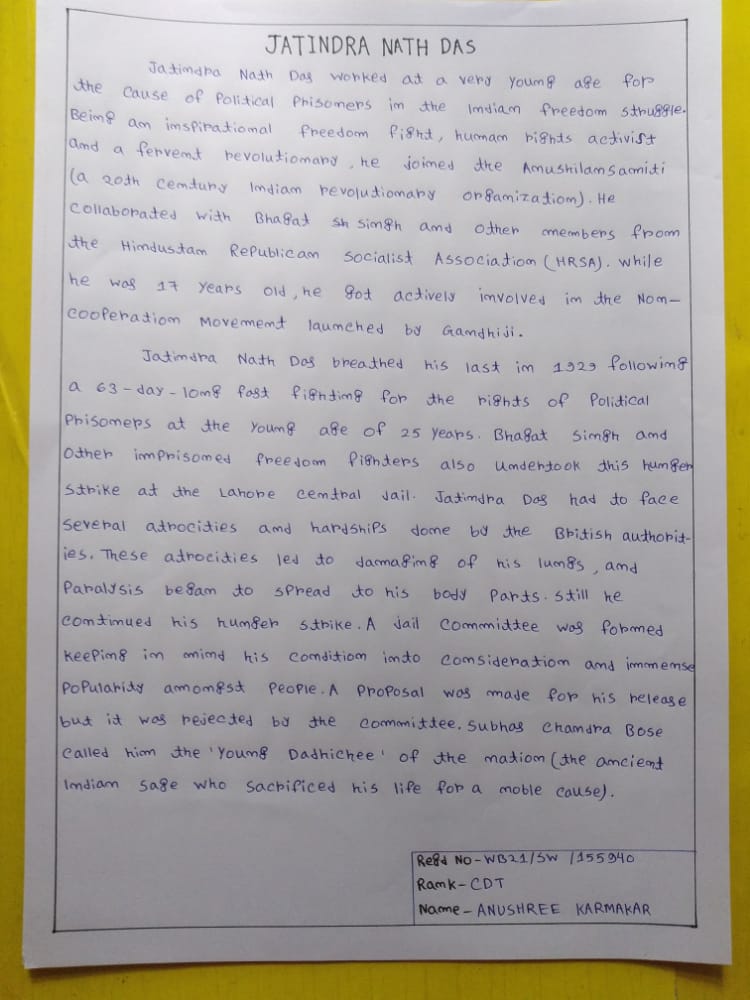 JATINDRA NATH DAS
Jatindra Nath Das worked at a very young age for
the cause of Political Prisoners in the Indian freedom struggle.
Being an inspirational freedom fight, human rights activist
and a fervent revolutionary, he joined the Anushilansamiti
(a 20th century Indian revolutionary organization). He
collaborated with Bhagat sh singh and other members from
the Hindustan Republican Socialist Association (HRSA). While
he was 17 years old, he got actively involved in the Non-
cooperation Movement launched by Gandhiji.
Jatindra Nath Das breathed his last in 1929 following
a 63-day-long fast fighting for the rights of Political
Prisoners at the young age of 25 years. Bhagat Singh and
other imprisoned freedom fighters also undertook this hunger
strike at the Lahore Central Jail. Jatindra Das had to face
several atrocities and hardships done by the British authorit-
ies. These atrocities led to damaging of his lungs, and
Paralysis began to spread to his body Parts. Still he
continued his hunger strike. A Jail Committee was formed
keeping in mind his condition into consideration and immense
Popularity amongst People. A Proposal was made for his release
but it was rejected by the committee. Subhas Chandra Bose
called him the 'Young Dadhichee' of the nation (the ancient
Indian sage who sacrificed his life for a noble cause).
Regd No-WB21/SW/155940
Rank-CDT
Name-ANUSHREE KARMAKAR